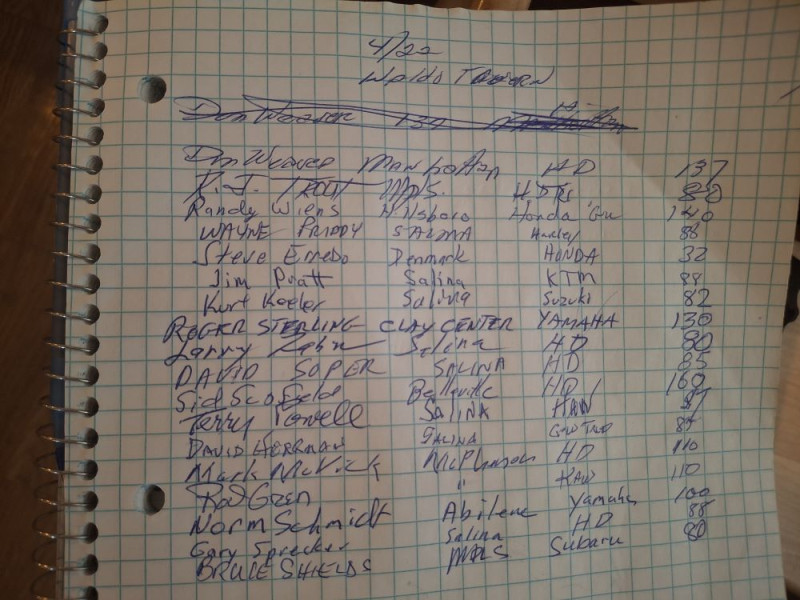 4/22
Waldo Tavern
Don Weaver 137
Don Weaver Manhattan HD 137
R.J. Trout Mpls. HD Tri 80
Randy Wiens Hillsboro Honda Gw 140
WAYNE PRIDDY SALINA Harley 88
Steve Denmark HONDA 32
Jim Pratt Salina KTM 88
Kurt Salina Suzuki 82
ROGER STERLING CLAY CENTER YAMAHA 130
Larry Salina HD 80
DAVID SOPER SALINA HD 85
Sid Scofield Belleville HD 160
Terry Powell SALINA KAW
DAVID HERRMAN SALINA 85
Mark McPherson HD 110
Rod Green " KAW 110
Norm Schmidt Abilene Yamaha 100
Gary Sprecker Salina HD 88
BRUCE SHIELDS MPLS Subaru 80